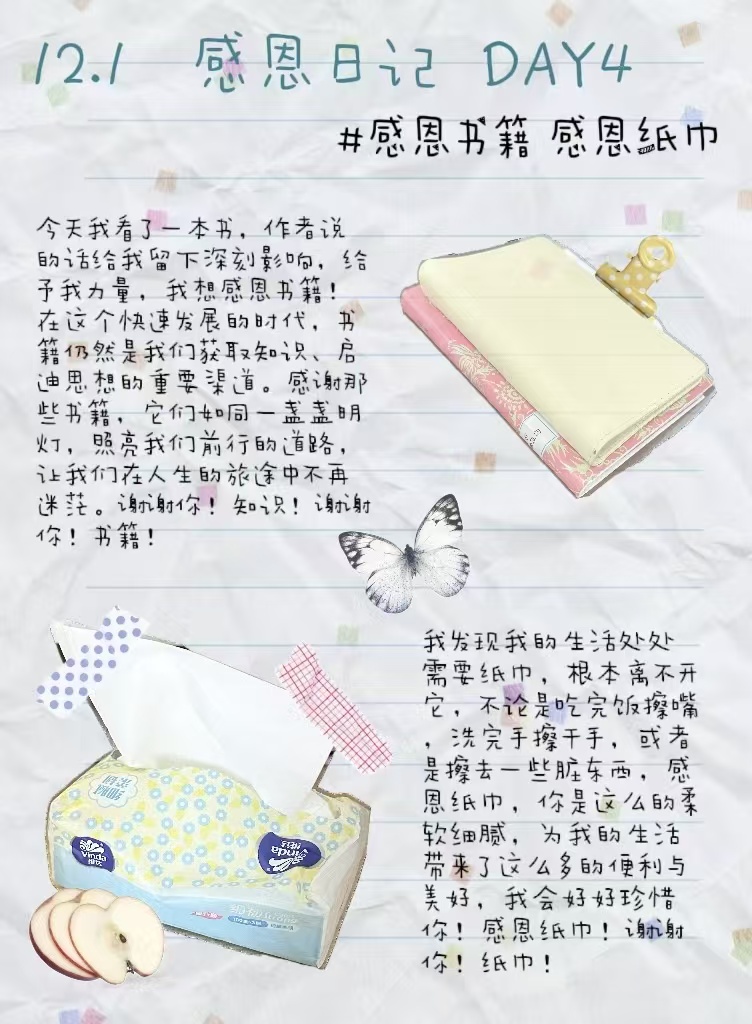 12.1 感恩日记 DAY4
#感恩书籍 感恩纸巾
今天我看了一本书，作者说
的话给我留下深刻影响，给
予我力量，我想感恩书籍！
在这个快速发展的时代，书
籍仍然是我们获取知识、启
迪思想的重要渠道。感谢那
些书籍，它们如同一盏盏明
灯，照亮我们前行的道路，
让我们在人生的旅途中不再
迷茫。谢谢你！知识！谢谢
你！书籍！
我发现我的生活处处
需要纸巾，根本离不开
它，不论是吃完饭擦嘴
，洗完手擦干手，或者
是擦去一些脏东西，感
恩纸巾，你是这么的柔
软细腻，为我的生活
带来了这么多的便利与
美好，我会好好珍惜
你！感恩纸巾！谢谢
你！纸巾！
细腻
Vinda
维达
Vinda
维达